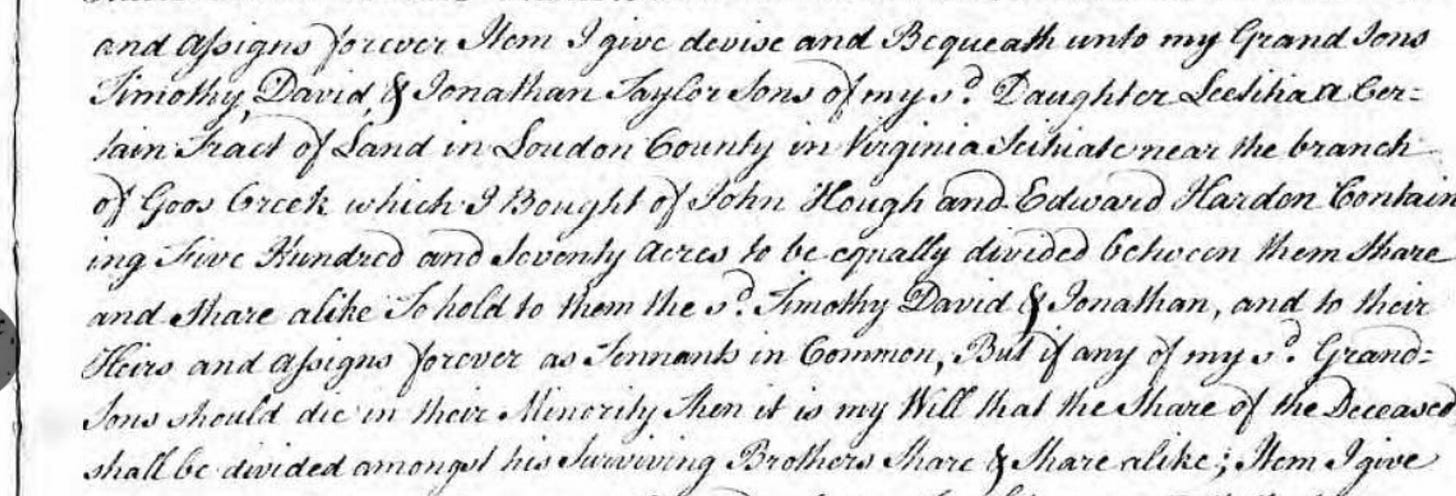 and assigns forever Item I give devise and Bequeath unto my Grand Sons
Timothy, David, & Jonathan Taylor Sons of my sd. Daughter Leetitia a Cer=
tain Tract of Land in Loudon County in Virginia Scituate near the branch
of Goos Creek which I Bought of John Hough and Edward Hardon Contain
ing Five Hundred and Seventy Acres to be equally divided between them Share
and Share alike To hold to them the sd. Timothy David & Jonathan, and to their
Heirs and assigns forever as Tennants in Common, But if any of my sd. Grand=
Sons should die in their Minority then it is my Will that the Share of the Deceased
shall be divided amongst his Surviving Brothers Share & Share alike; Item I give